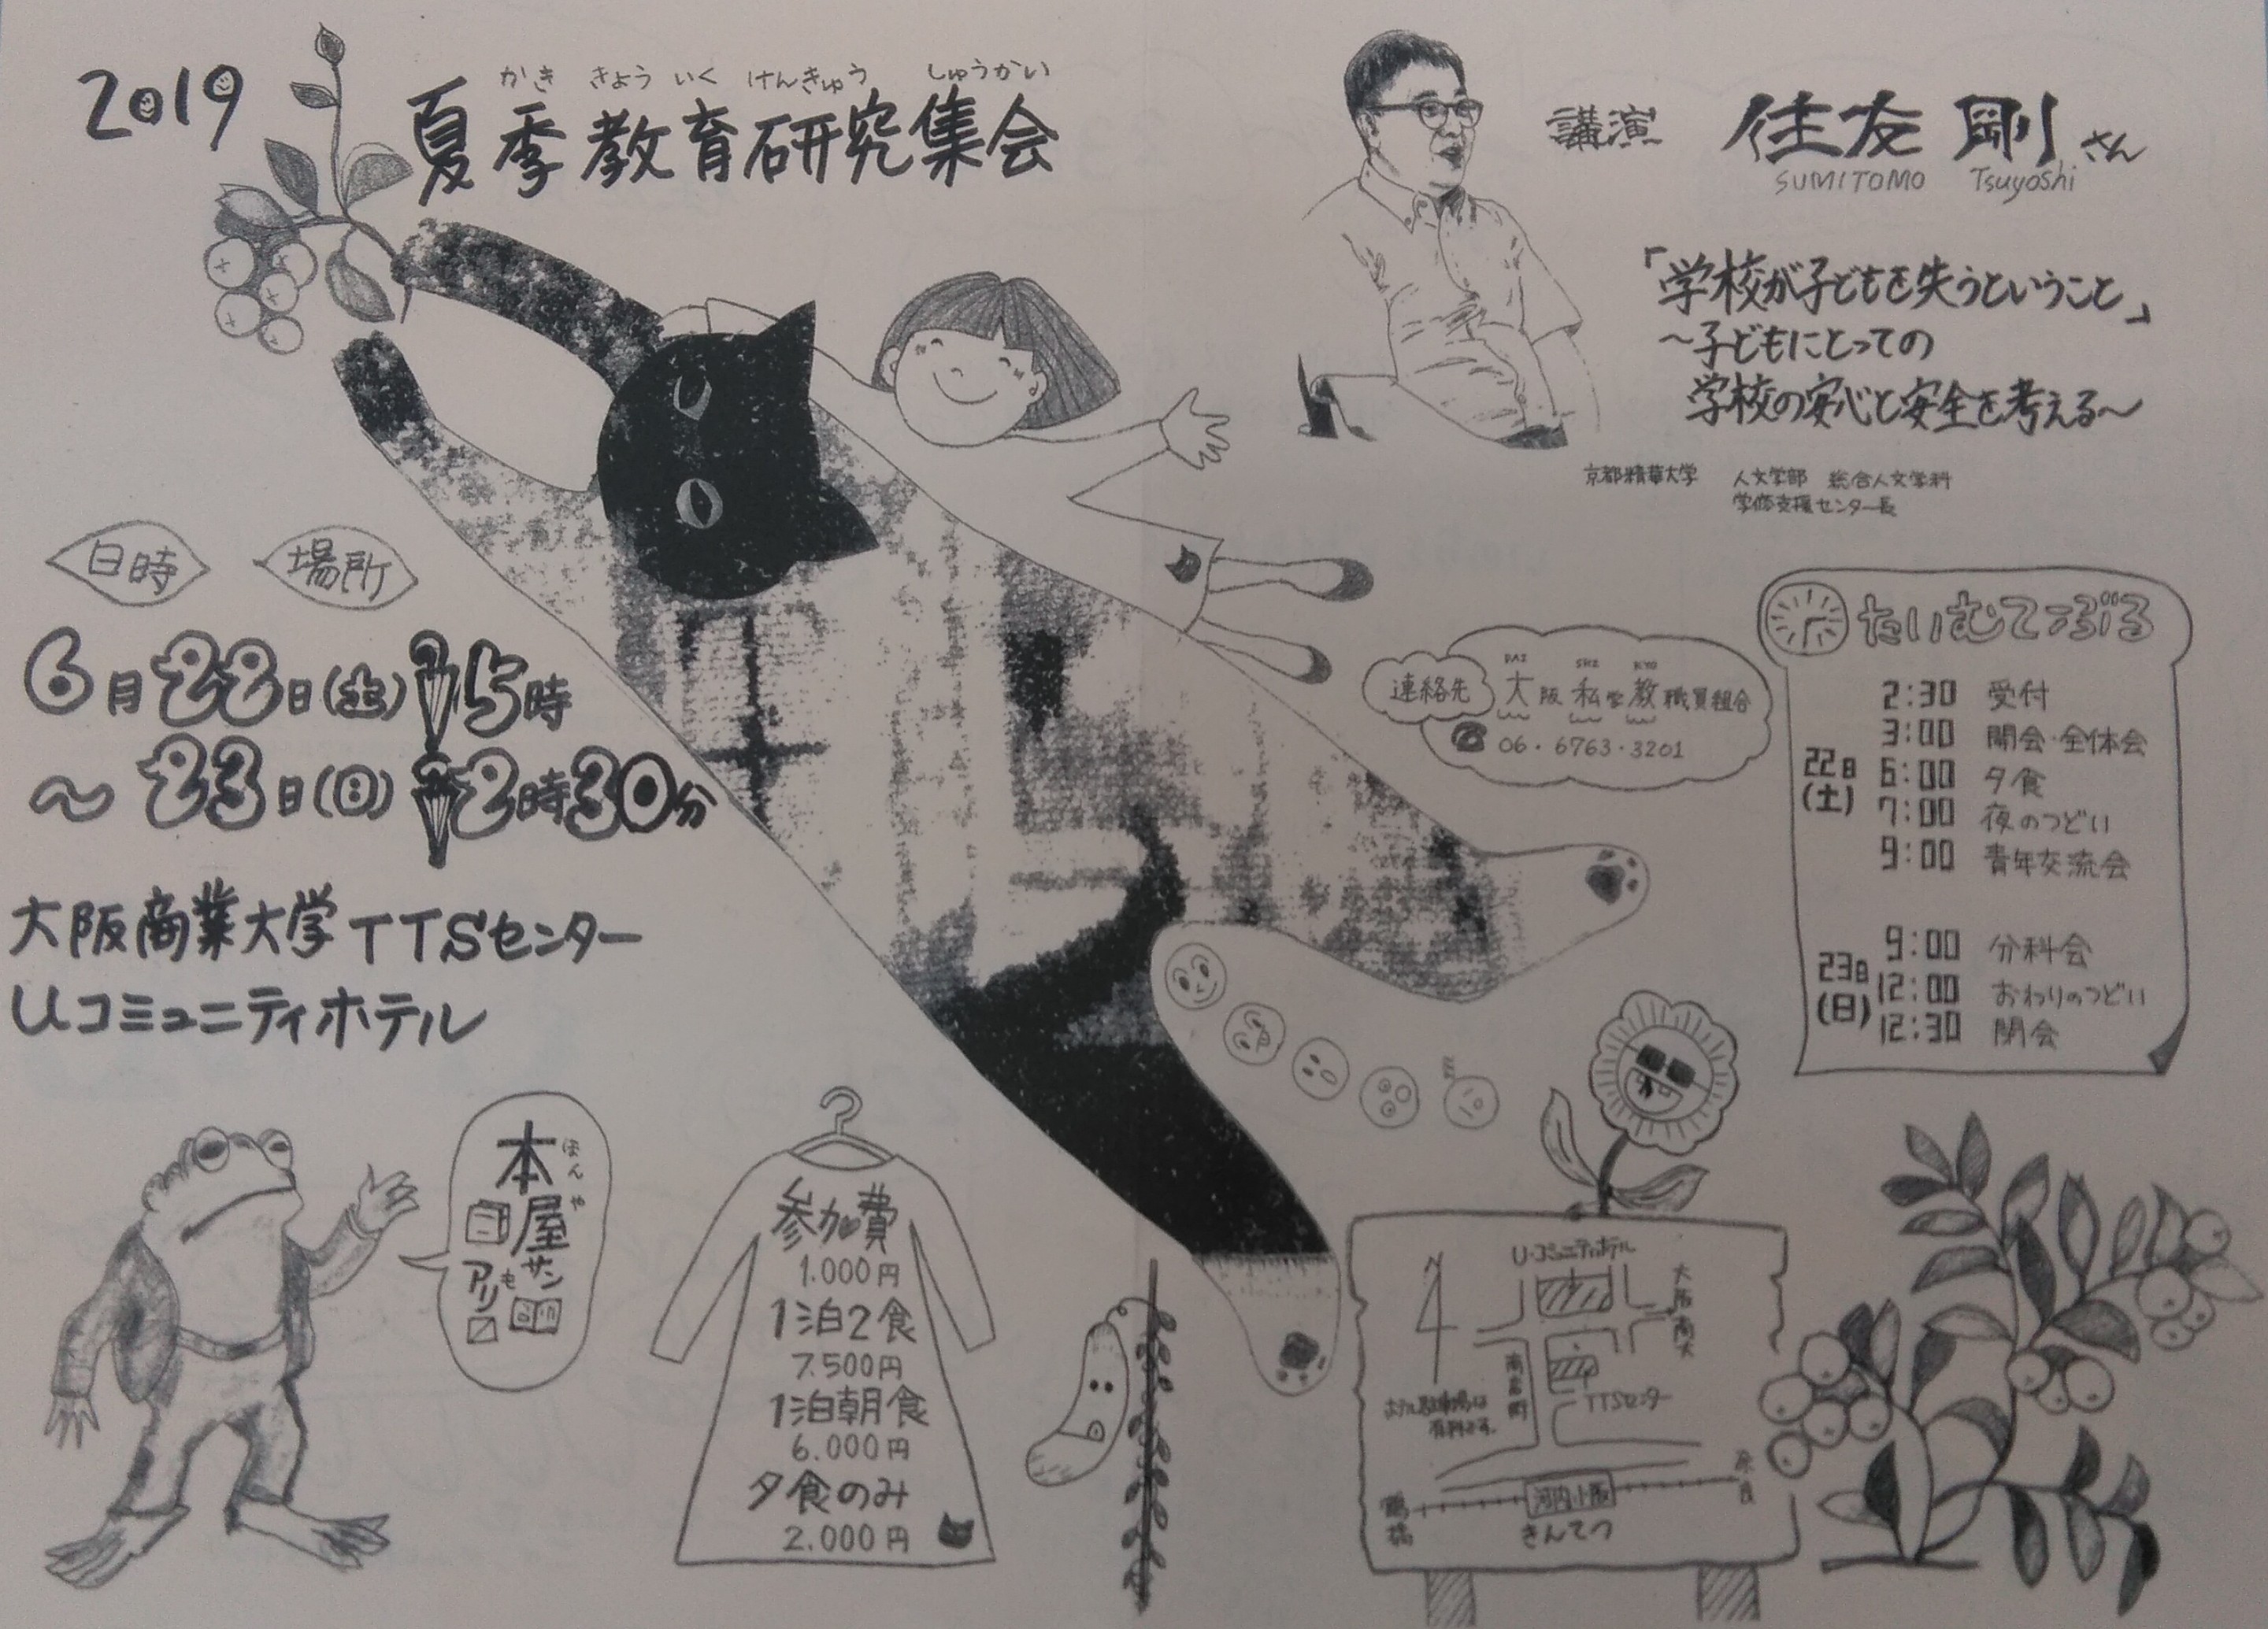 2019
かき きょういく けんきゅう しゅうかい
夏季教育研究集会
講演 住友 剛さん
SUMITOMO Tsuyoshi
「学校が子どもを失うということ」
～子どもにとっての
学校の安心と安全を考える～
京都精華大学 人文学部 総合人文学科
学修支援センター長
日時 場所
6月22日(土)15時
～23日(日)12時30分
大阪商業大学TTSセンター
Uコミュニティホテル
連絡先
DAI SHI KYO
大阪私学教職員組合
☎ 06・6763・3201
たいむてーぶる
22日(土)
2:30 受付
3:00 開会・全体会
6:00 夕食
7:00 夜のつどい
9:00 青年交流会
23日(日)
9:00 分科会
12:00 おわりのつどい
12:30 閉会
ほんや
本屋サン
もアリマス
参加費
1.000円
1泊2食
7.500円
1泊朝食
6.000円
夕食のみ
2.000円
U・コミュニティホテル
大阪商大
ホテル駐車場は
有料です。
TTSセンター
鶴橋
河内小阪
奈良
きんてつ